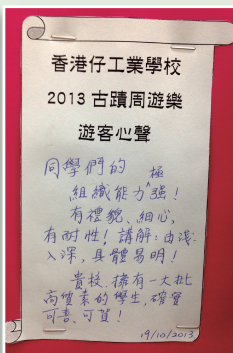 香港仔工業學校
2013 古蹟周遊樂
遊客心聲
同學們的
組織能力極強！
有禮貌、細心，
有耐性！講解：由淺
入深，具體易明！
貴校擁有一大批
高質素的學生，確實
可喜、可賀！
19/10/2013